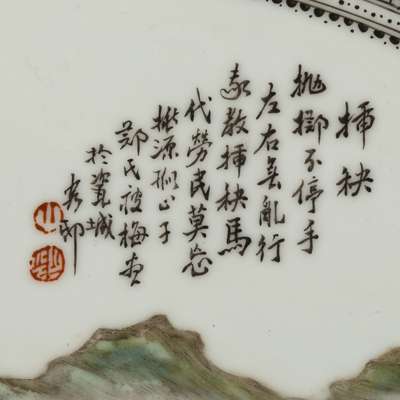 插秧
抛擲不停手
左右無亂行
我教插秧馬
代勞民莫忘
源山子
鄭氏梅
於瓷城
客邸